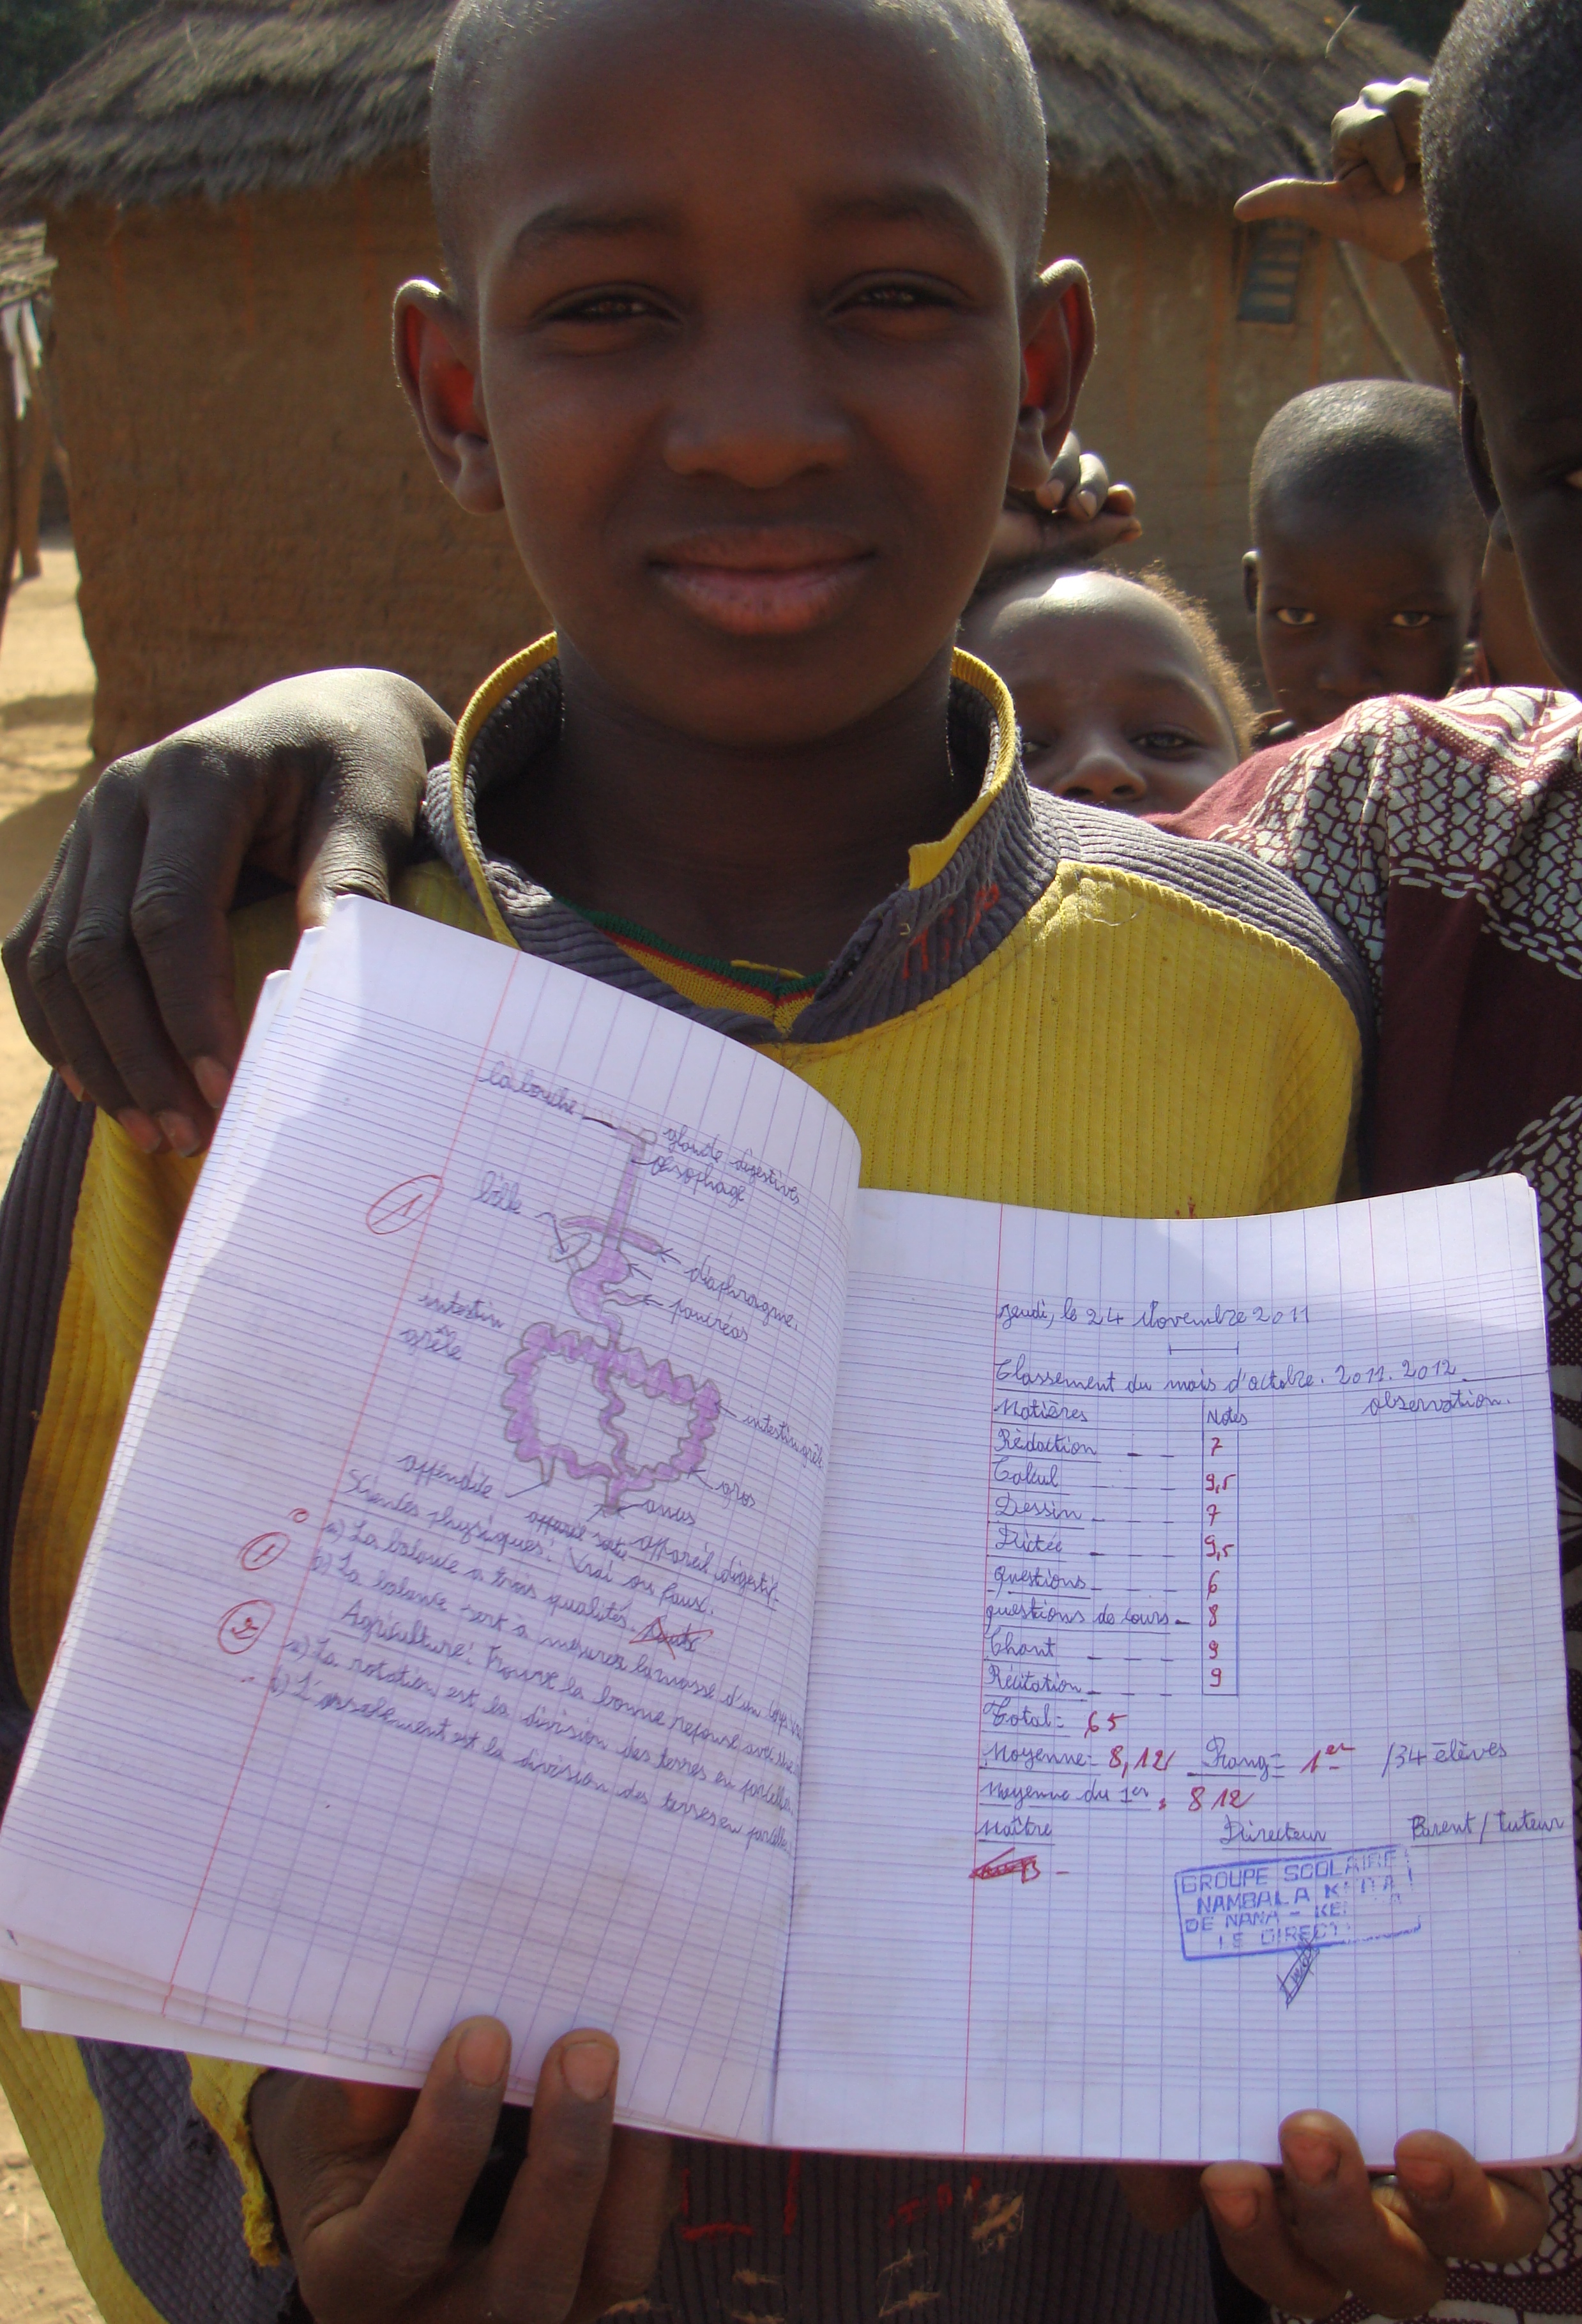 la bouche
glande digestives
oesophage
bille
1
diaphragme.
pancréas
intestin
grêle
intestin grêle
gros
appendice
anus
appareil digestif.
Sciences physiques: Vrai ou faux.
1
a) La balance a trois qualités.
b) La balance sert à mesurer la masse d'un corps
2
Agriculture: Trouve la bonne reponse
a) La rotation est la division des terres en parcelles.
b) L' est la division des terres en parcelles
jeudi, le 24 Novembre 2011
Classement du mois d'octobre. 2011. 2012
Matières Notes observation.
Rédaction 7
Calcul 9,5
Dessin 7
Dictée 9,5
questions 6
questions de cours 8
Chant 9
Récitation 9
Total = 65
Moyenne = 8,12 Rang = 1er /34 élèves
Moyenne du 1er : 8 12
Maître Directeur Parent / tuteur
GROUPE SCOLAIRE
NAMBALA
DE NANA -
LE DIRECT